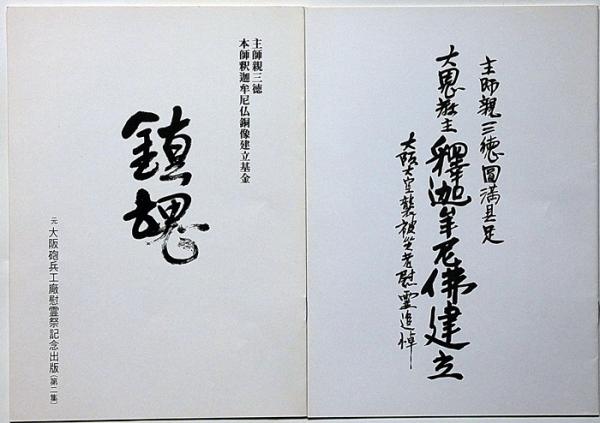 主師親三徳
本師釈迦牟尼仏銅像建立基金
鎮魂
元 大阪砲兵工廠慰霊祭記念出版(第二集)
主師親三徳圓満具足
大恩教主 釋迦牟尼佛建立
大阪大空襲被災者慰霊追悼